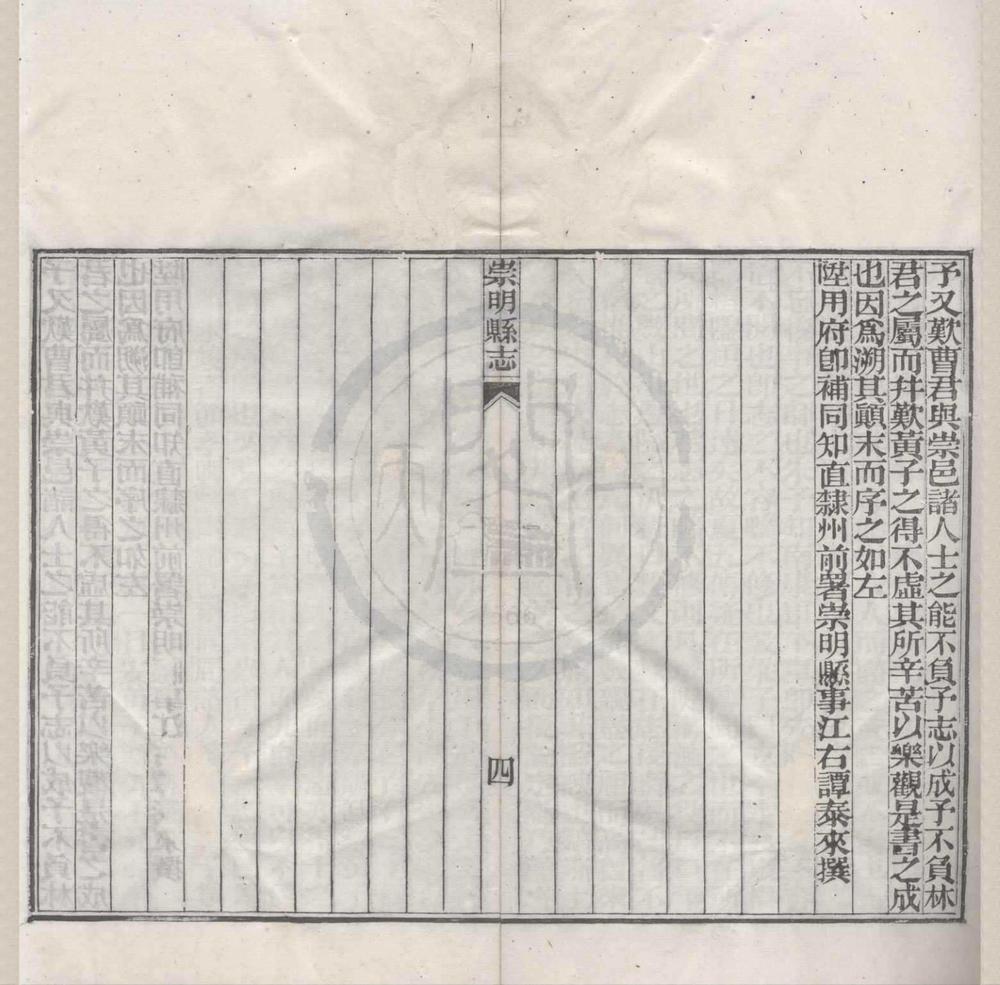 予又歎曹君與崇邑諸人士之能不負予志以成予不負林
君之屬而幷歎黃子之得不虛其所辛苦以樂觀是書之成
也因爲溯其顚末而序之如左
陞用府卽補同知直隸州前署崇明縣事江右譚泰來撰
崇明縣志
四